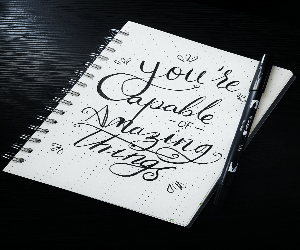 You're
Capable
OF
Amazing
Things